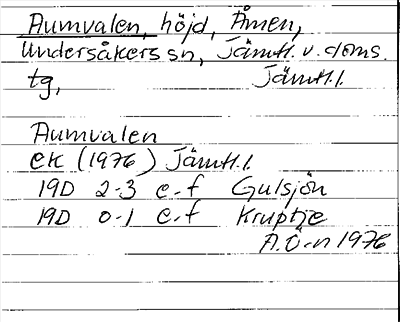 Aumvalen, höjd, Åmen,
Undersåkers sn, Jämtl. v. doms.
tg, Jämtl. l.
Aumvalen
ek (1976) Jämtl. l.
19D 2-3 e-f Gulsjön
19D 0-1 e-f Kruptje
A.Ö-n 1976